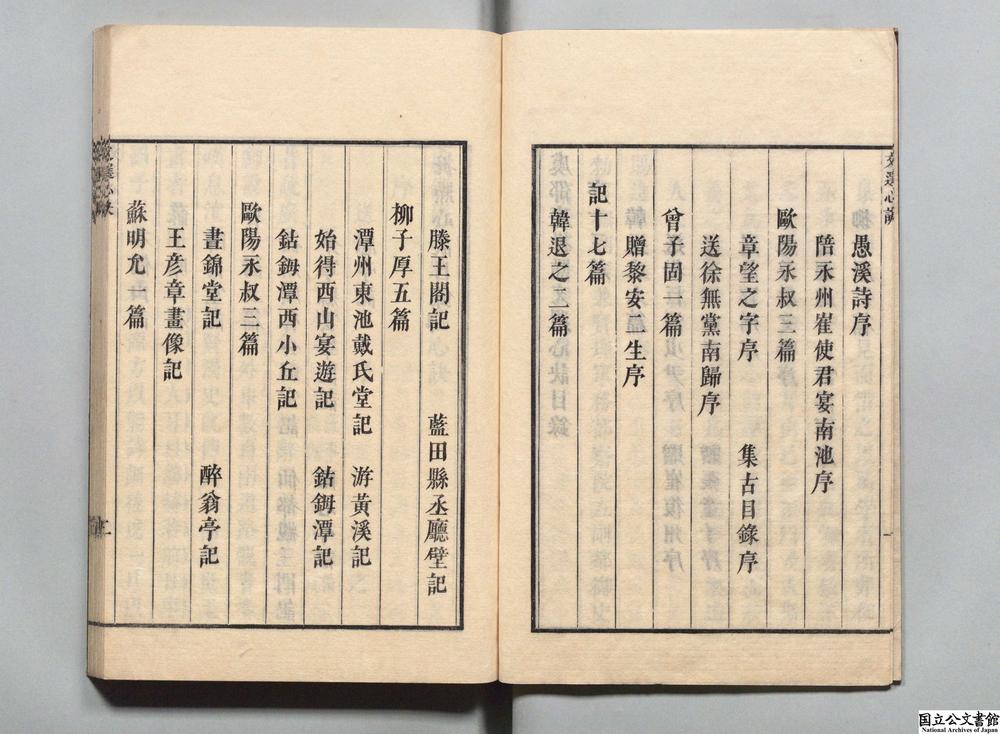 文選心訣
一
愚溪詩序
陪永州崔使君宴南池序
歐陽永叔三篇
章望之字序　集古目錄序
送徐無黨南歸序
曾子固一篇
贈黎安二生序
記十七篇
韓退之二篇
滕王閣記　藍田縣丞廳壁記
柳子厚五篇
潭州東池戴氏堂記　游黃溪記
始得西山宴遊記　鈷鉧潭記
鈷鉧潭西小丘記
歐陽永叔三篇
晝錦堂記　醉翁亭記
王彦章畫像記
蘇明允一篇
文選心訣
二
国立公文書館
National Archives of Japan